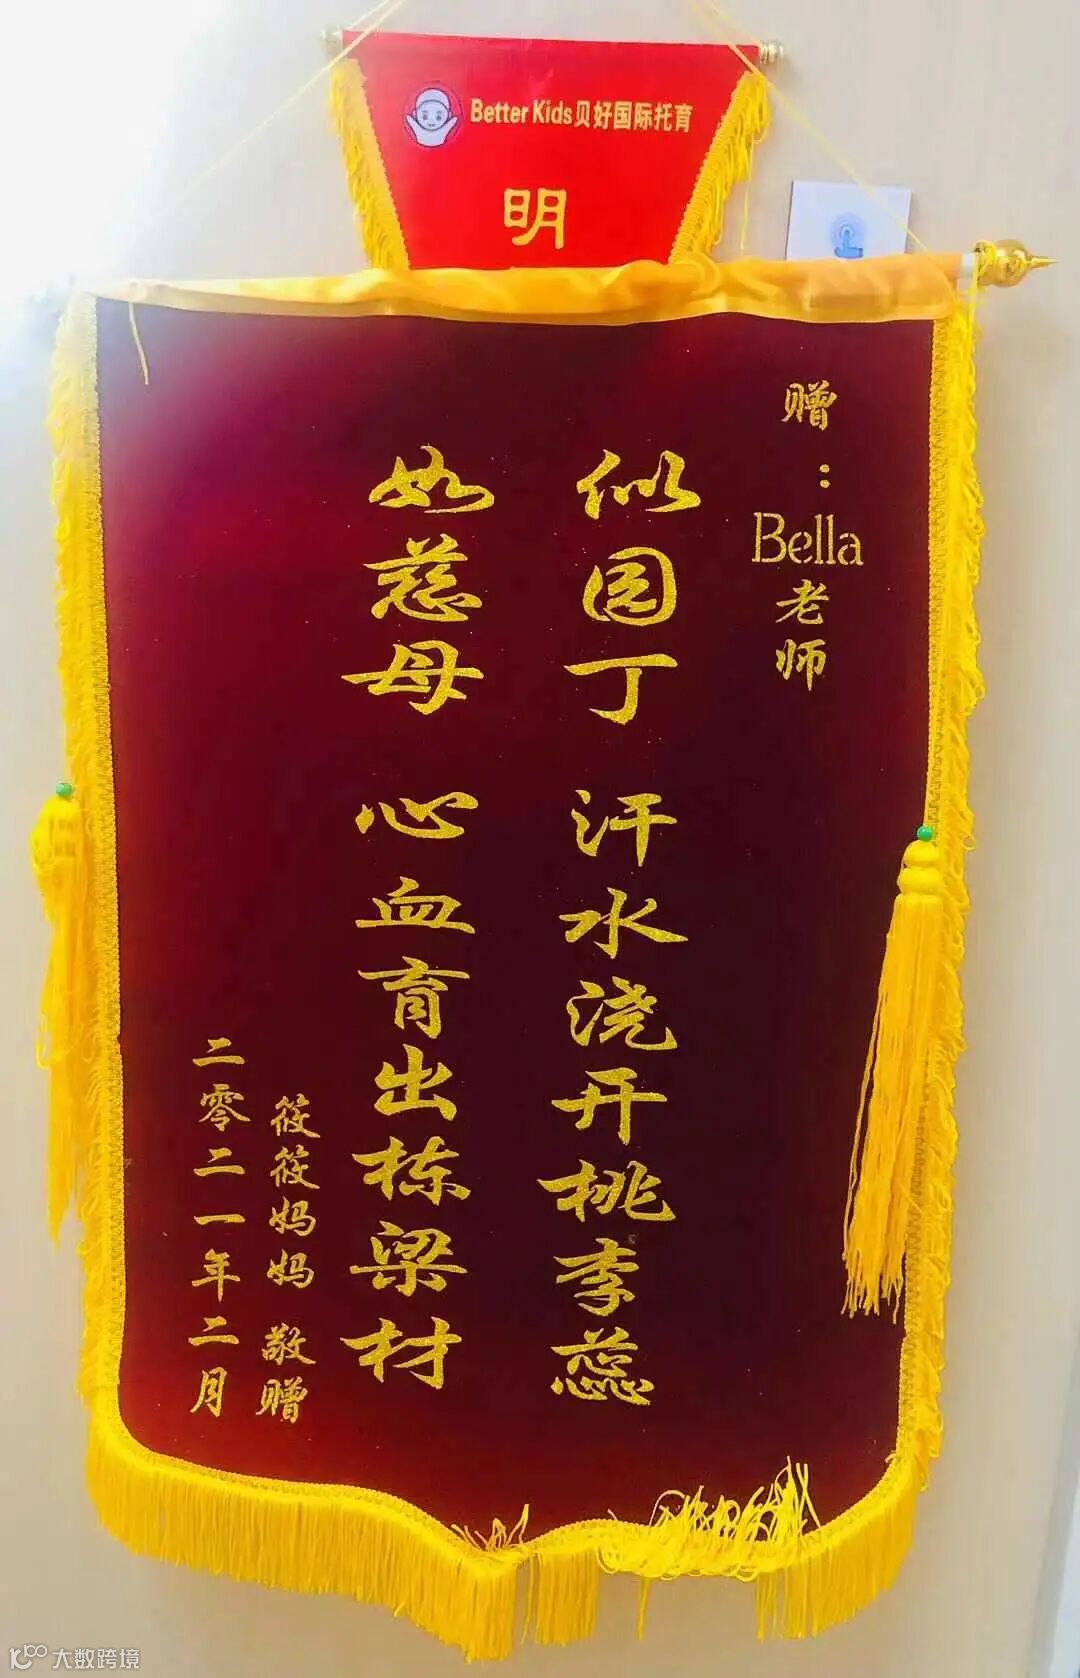 Better Kids贝好国际托育
明
赠：Bella老师
似园丁 汗水浇开桃李蕊
如慈母 心血育出栋梁材
筱筱妈妈 敬赠
二零二一年二月
大数跨境